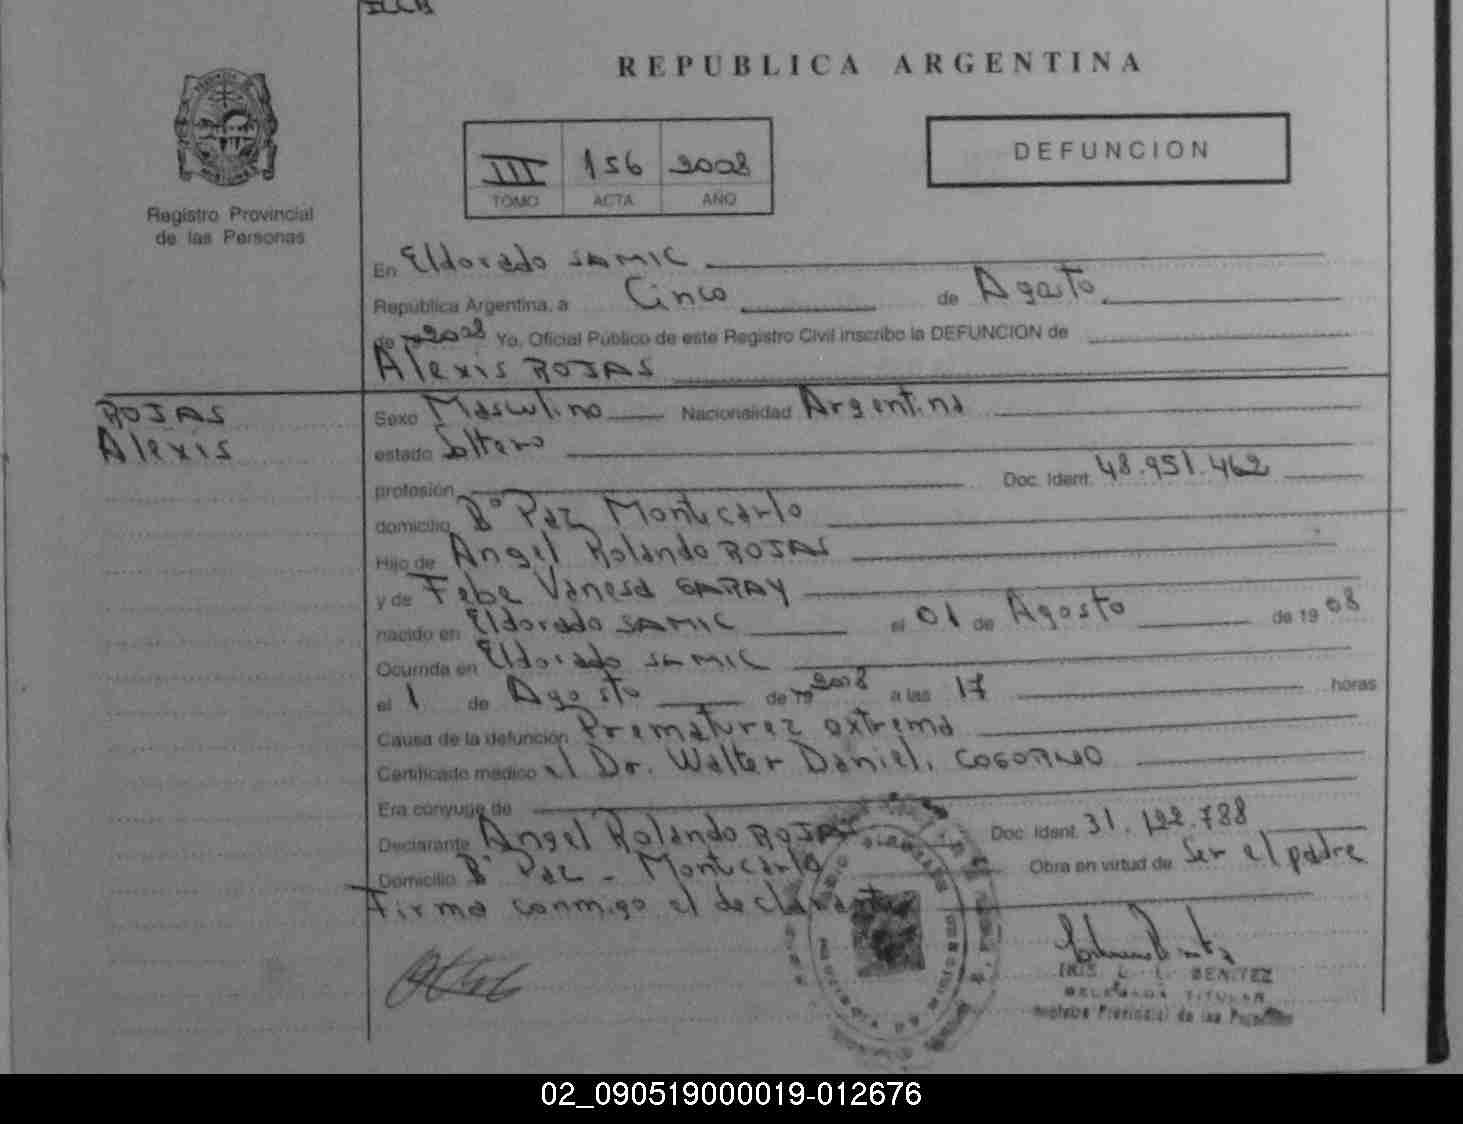 REPUBLICA ARGENTINA
III 156 2008
TOMO ACTA AÑO
DEFUNCION
Registro Provincial
de las Personas
En Eldorado SAMIC
República Argentina, a Cinco de Agosto
de 2008 Yo, Oficial Público de este Registro Civil inscribo la DEFUNCION de
Alexis ROJAS
ROJAS
Alexis
Sexo Masculino Nacionalidad Argentina
estado Soltero
profesión Doc. Ident. 48.951.462
domicilio Bº Paz Montecarlo
Hijo de Angel Rolando ROJAS
y de Febe Vanesa GARAY
nacido en Eldorado SAMIC el 01 de Agosto de 19 08
Ocurrida en Eldorado SAMIC
el 1 de Agosto de 19 2008 a las 17 horas
Causa de la defunción Prematurez extrema
Certificado médico el Dr. Walter Daniel, COGORNO
Era conyuge de
Declarante Angel Rolando ROJAS Doc. Ident. 31.122.788
Domicilio Bº Paz - Montecarlo Obra en virtud de Ser el padre
Firma conmigo el declarante
L. BENITEZ
DELEGADA TITULAR
Provincial de las Personas
02_090519000019-012676